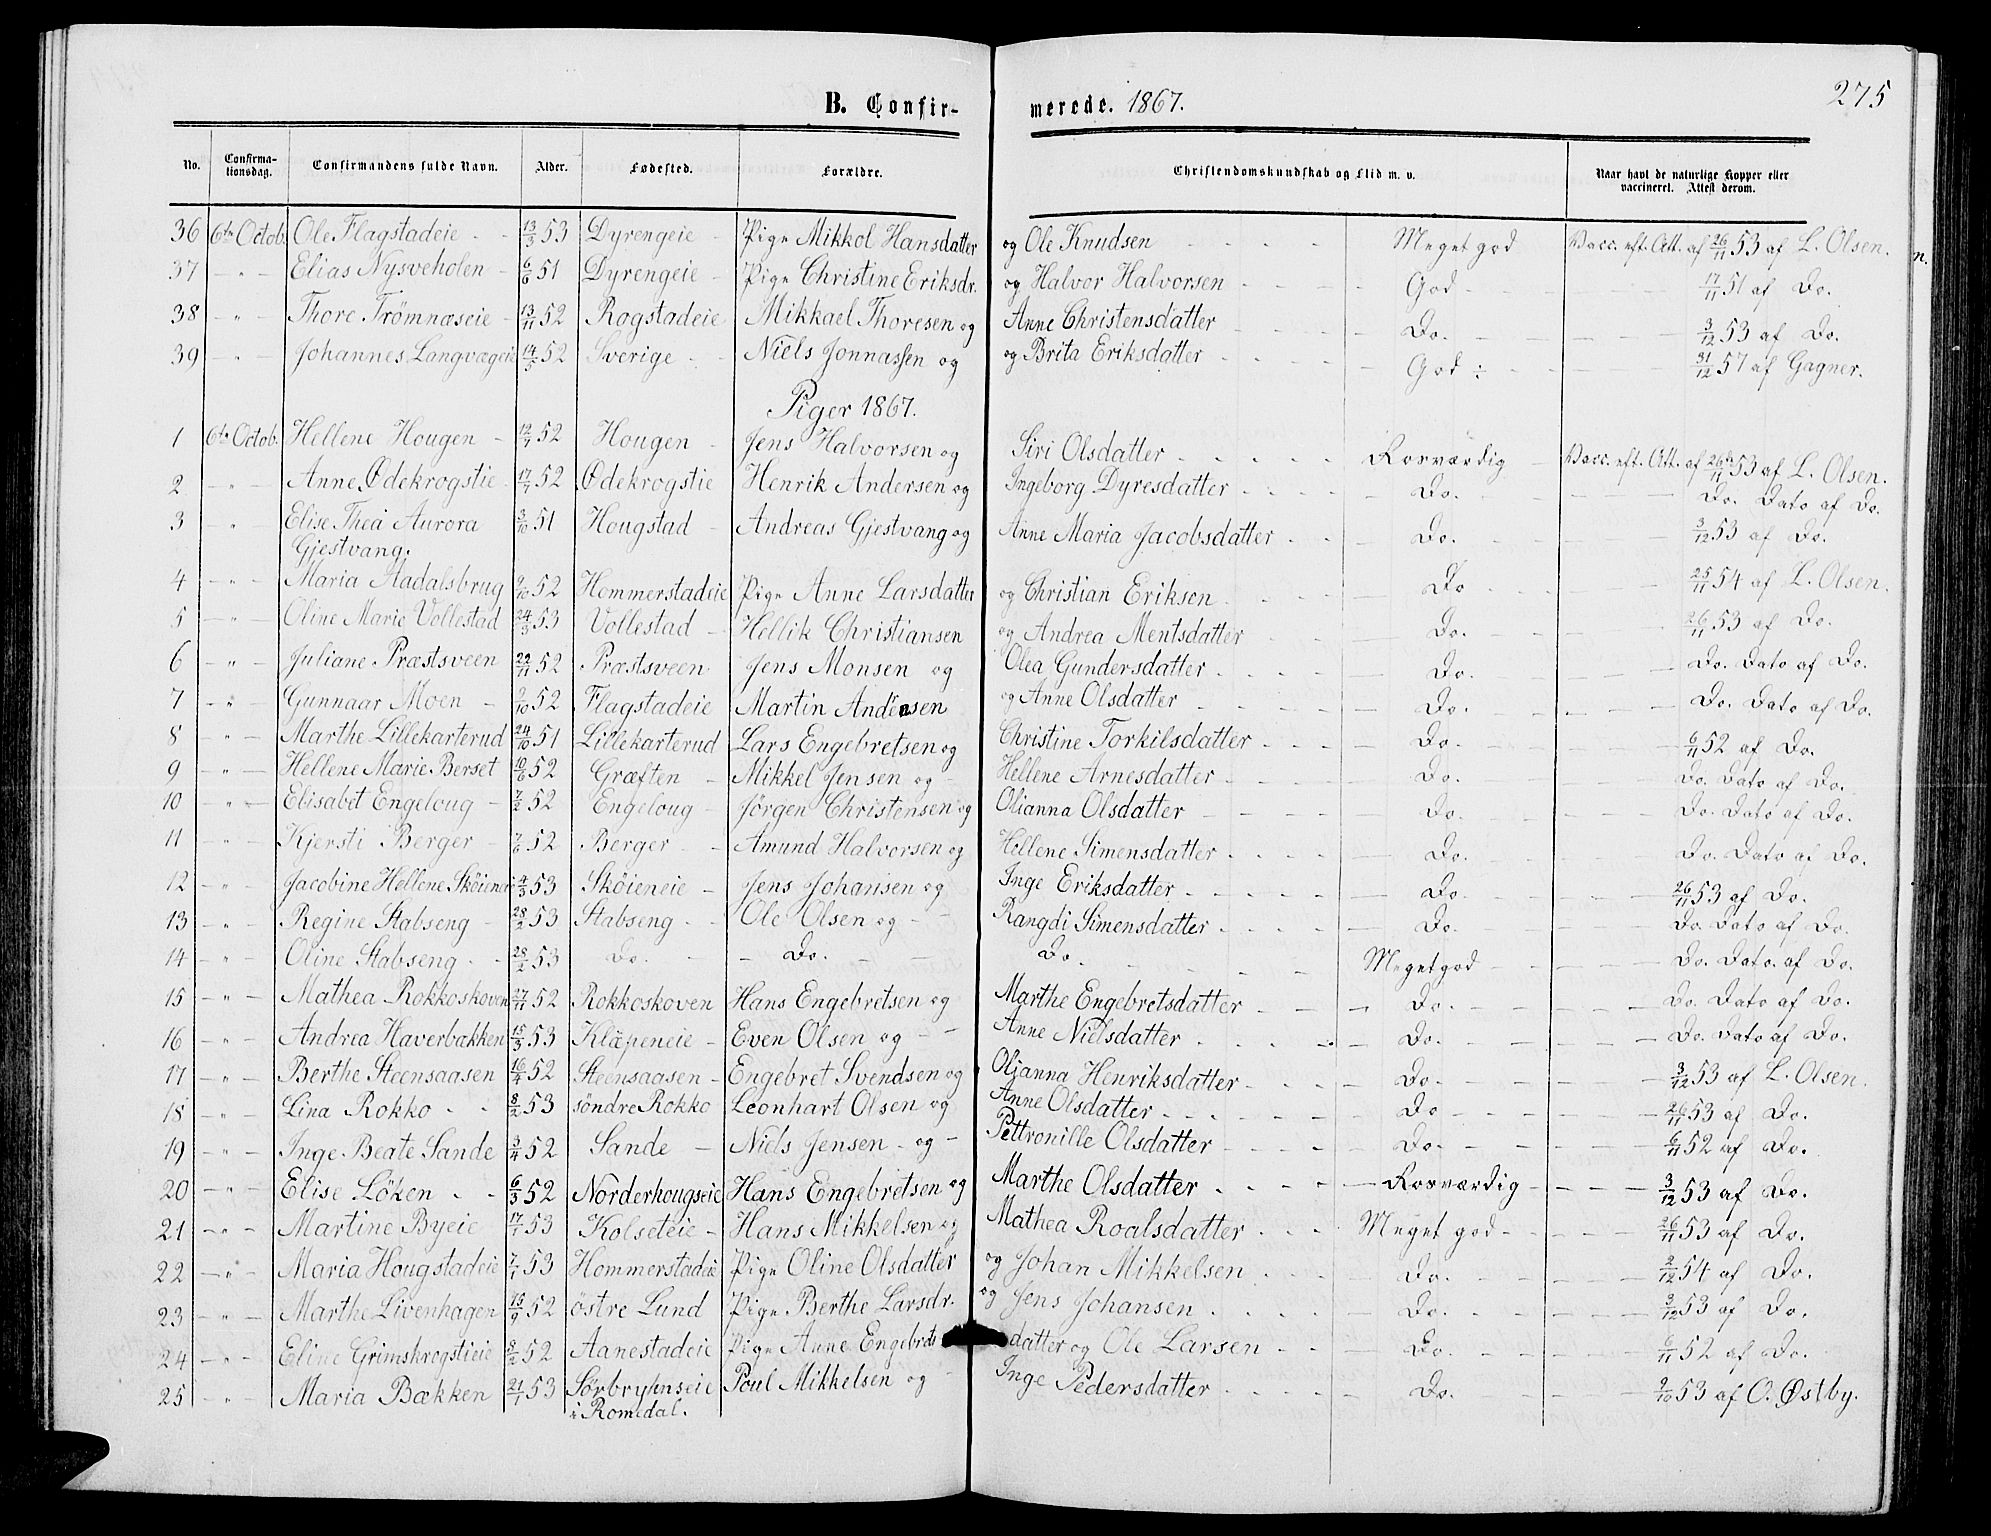 275
B. Confir- merede. 1867.
No. Confirma-tionsdag. Confirmandens fulde Navn. Alder. Fødested. Forældre. Christendomskundskab og Flid m. v. Naar havt de naturlige Kopper eller vaccineret. Attest derom.
36 6te Octob. Ole Flagstadeie - - 13/3 53 Dyrengeie - Pige Mikkol Hansdatter og Ole Knudsen - - - - Meget god Vacc. eft. Att. af 26/11 53 af L. Olsen.
37 - " - Elias Nysveholen - 6/6 51 Dyrengeie - Pige Christine Eriksdr. og Halvor Halvorsen - - - - God - - - 17/11 51 af Do.
38 - " - Thore Trömnæseie - 13/11 52 Rogstadeie Mikkael Thoresen og Anne Christensdatter - - - - Do. - - - 3/12 53 af Do.
39 - " - Johannes Langvægeie 14/5 52 Sverige - - Niels Jonnassen og og Brita Eriksdatter - - - - God ÷ - - - 31/12 57 af Gagner.
Piger 1867.
1 6te Octob. Hellene Hougen - 12/7 52 Hougen - Jens Halvorsen og Siri Olsdatter - - - - Rosværdig - Vacc. eft. Att. af 26de/11 53 af L. Olsen.
2 - " - Anne Ødekrogstie - 17/7 52 Ødekrogstie Henrik Andersen og Ingeborg Dyresdatter - - - - Do. - - - Do. Dato af Do.
3 - " - Elise Thea Aurora 3/10 51 Hougstad - Andreas Gjestvang og Anne Maria Jacobsdatter - - - Do. - - - 3/12 53 af Do.
Gjestvang.
4 - " - Maria Aadalsbrug 9/10 52 Hommerstadeie Pige Anne Larsdatter og Christian Eriksen - - - - Do - - - 25/11 54 af L. Olsen.
5 - " - Oline Marie Vollestad 24/3 53 Vollestad - Hellik Christiansen og Andrea Mentsdatter - - - Do. - - - 26/11 53 af Do.
6 - " - Juliane Præstsveen 22/11 52 Præstsveen Jens Monsen og Olea Gundersdatter - - - - Do. - - - Do. Dato af Do.
7 - " - Gunnaar Moen - 9/10 52 Flagstadeie Martin Andersen og Anne Olsdatter - - - - Do. - - - Do. Dato af Do.
8 - " - Marthe Lillekarterud 24/10 51 Lillekarterud Lars Engebretsen og Christine Torkilsdatter - - - Do. - - - 6/11 52 af Do.
9 - " - Hellene Marie Berset 10/6 52 Græften - Mikkel Jensen og - Hellene Arnesdatter - - - Do. - - - Do. Dato af Do.
10 - " - Elisabet Engeloug - 7/2 52 Engeloug - Jørgen Christensen og Olianna Olsdatter - - - - Do. - - - Do. Dato af Do.
11 - " - Kjersti Berger - 7/6 52 Berger - - Amund Halvorsen og Hellene Simensdatter - - - - Do. - - - Do. Dato af Do.
12 - " - Jacobine Hellene Sköienei 4/3 53 Sköieneie - Jens Johansen og Inge Eriksdatter - - - - Do. - - - 26/11 53 af Do.
13 - " - Regine Stabseng - 28/2 53 Stabseng - - Ole Olsen og - - Rangdi Simensdatter - - - - Do. - - - Do. Dato af Do.
14 - " - Oline Stabseng - - 28/2 53 Do. - Do. - - Do. - - - - Meget god - - - Do. Dato. af Do.
15 - " - Mathea Rokkoskoven 27/11 52 Rokkoskoven Hans Engebretsen og Marthe Engebretsdatter - - - Do. - - - Do. Dato af Do.
16 - " - Andrea Haverbakken 15/3 53 Kläpeneie - Even Olsen og - Anne Nielsdatter - - - - Do. - - - Do. Dato af Do.
17 - " - Berthe Steensaasen 16/4 52 Steensaasen - Engebret Svendsen og Olianna Henriksdatter - - - Do - - - 3/12 53 af L. Olsen.
18 - " - Lina Rokko - - 8/2 53 söndre Rokko Leonhart Olsen og Anne Olsdatter - - - - Do - - - 26/11 53 af Do.
19 - " - Inge Beate Sande 3/4 52 Sande - Niels Jensen - og - Pettronille Olsdatter - - - - Do. - - - 6/11 52 af Do.
20 - " - Elise Löken - - 6/3 52 Norderhougseie Hans Engebretsen og Marthe Olsdatter - - - - Rosværdig - - - 3/12 53 af Do.
21 - " - Martine Byeie 17/7 53 Kolseteie - Hans Mikkelsen og Mathea Roalsdatter - - - Meget god - - - 26/11 53 af Do.
22 - " - Maria Hougstadeie 7/1 53 Hommerstadeie Pige Oline Olsdatter og Johan Mikkelsen - - - Do. - - - 2/12 54 af Do.
23 - " - Marthe Livenhagen 16/9 52 östre Lund Pige Berthe Larsdr. og Jens Johansen - - - - Do. - - - 3/12 53 af Do.
24 - " - Eline Grimskrogstieie 8/2 52 Aanestadeie Pige Anne Engebrets- datter og Ole Larsen - - - Do. - - - 6/11 52 af Do.
25 - " - Maria Bækken 21/1 53 Sörbryhnseie Poul Mikkelsen og - Inge Pedersdatter - - - - Do. - - - 9/10 53 af O. Østby.
i Romedal.